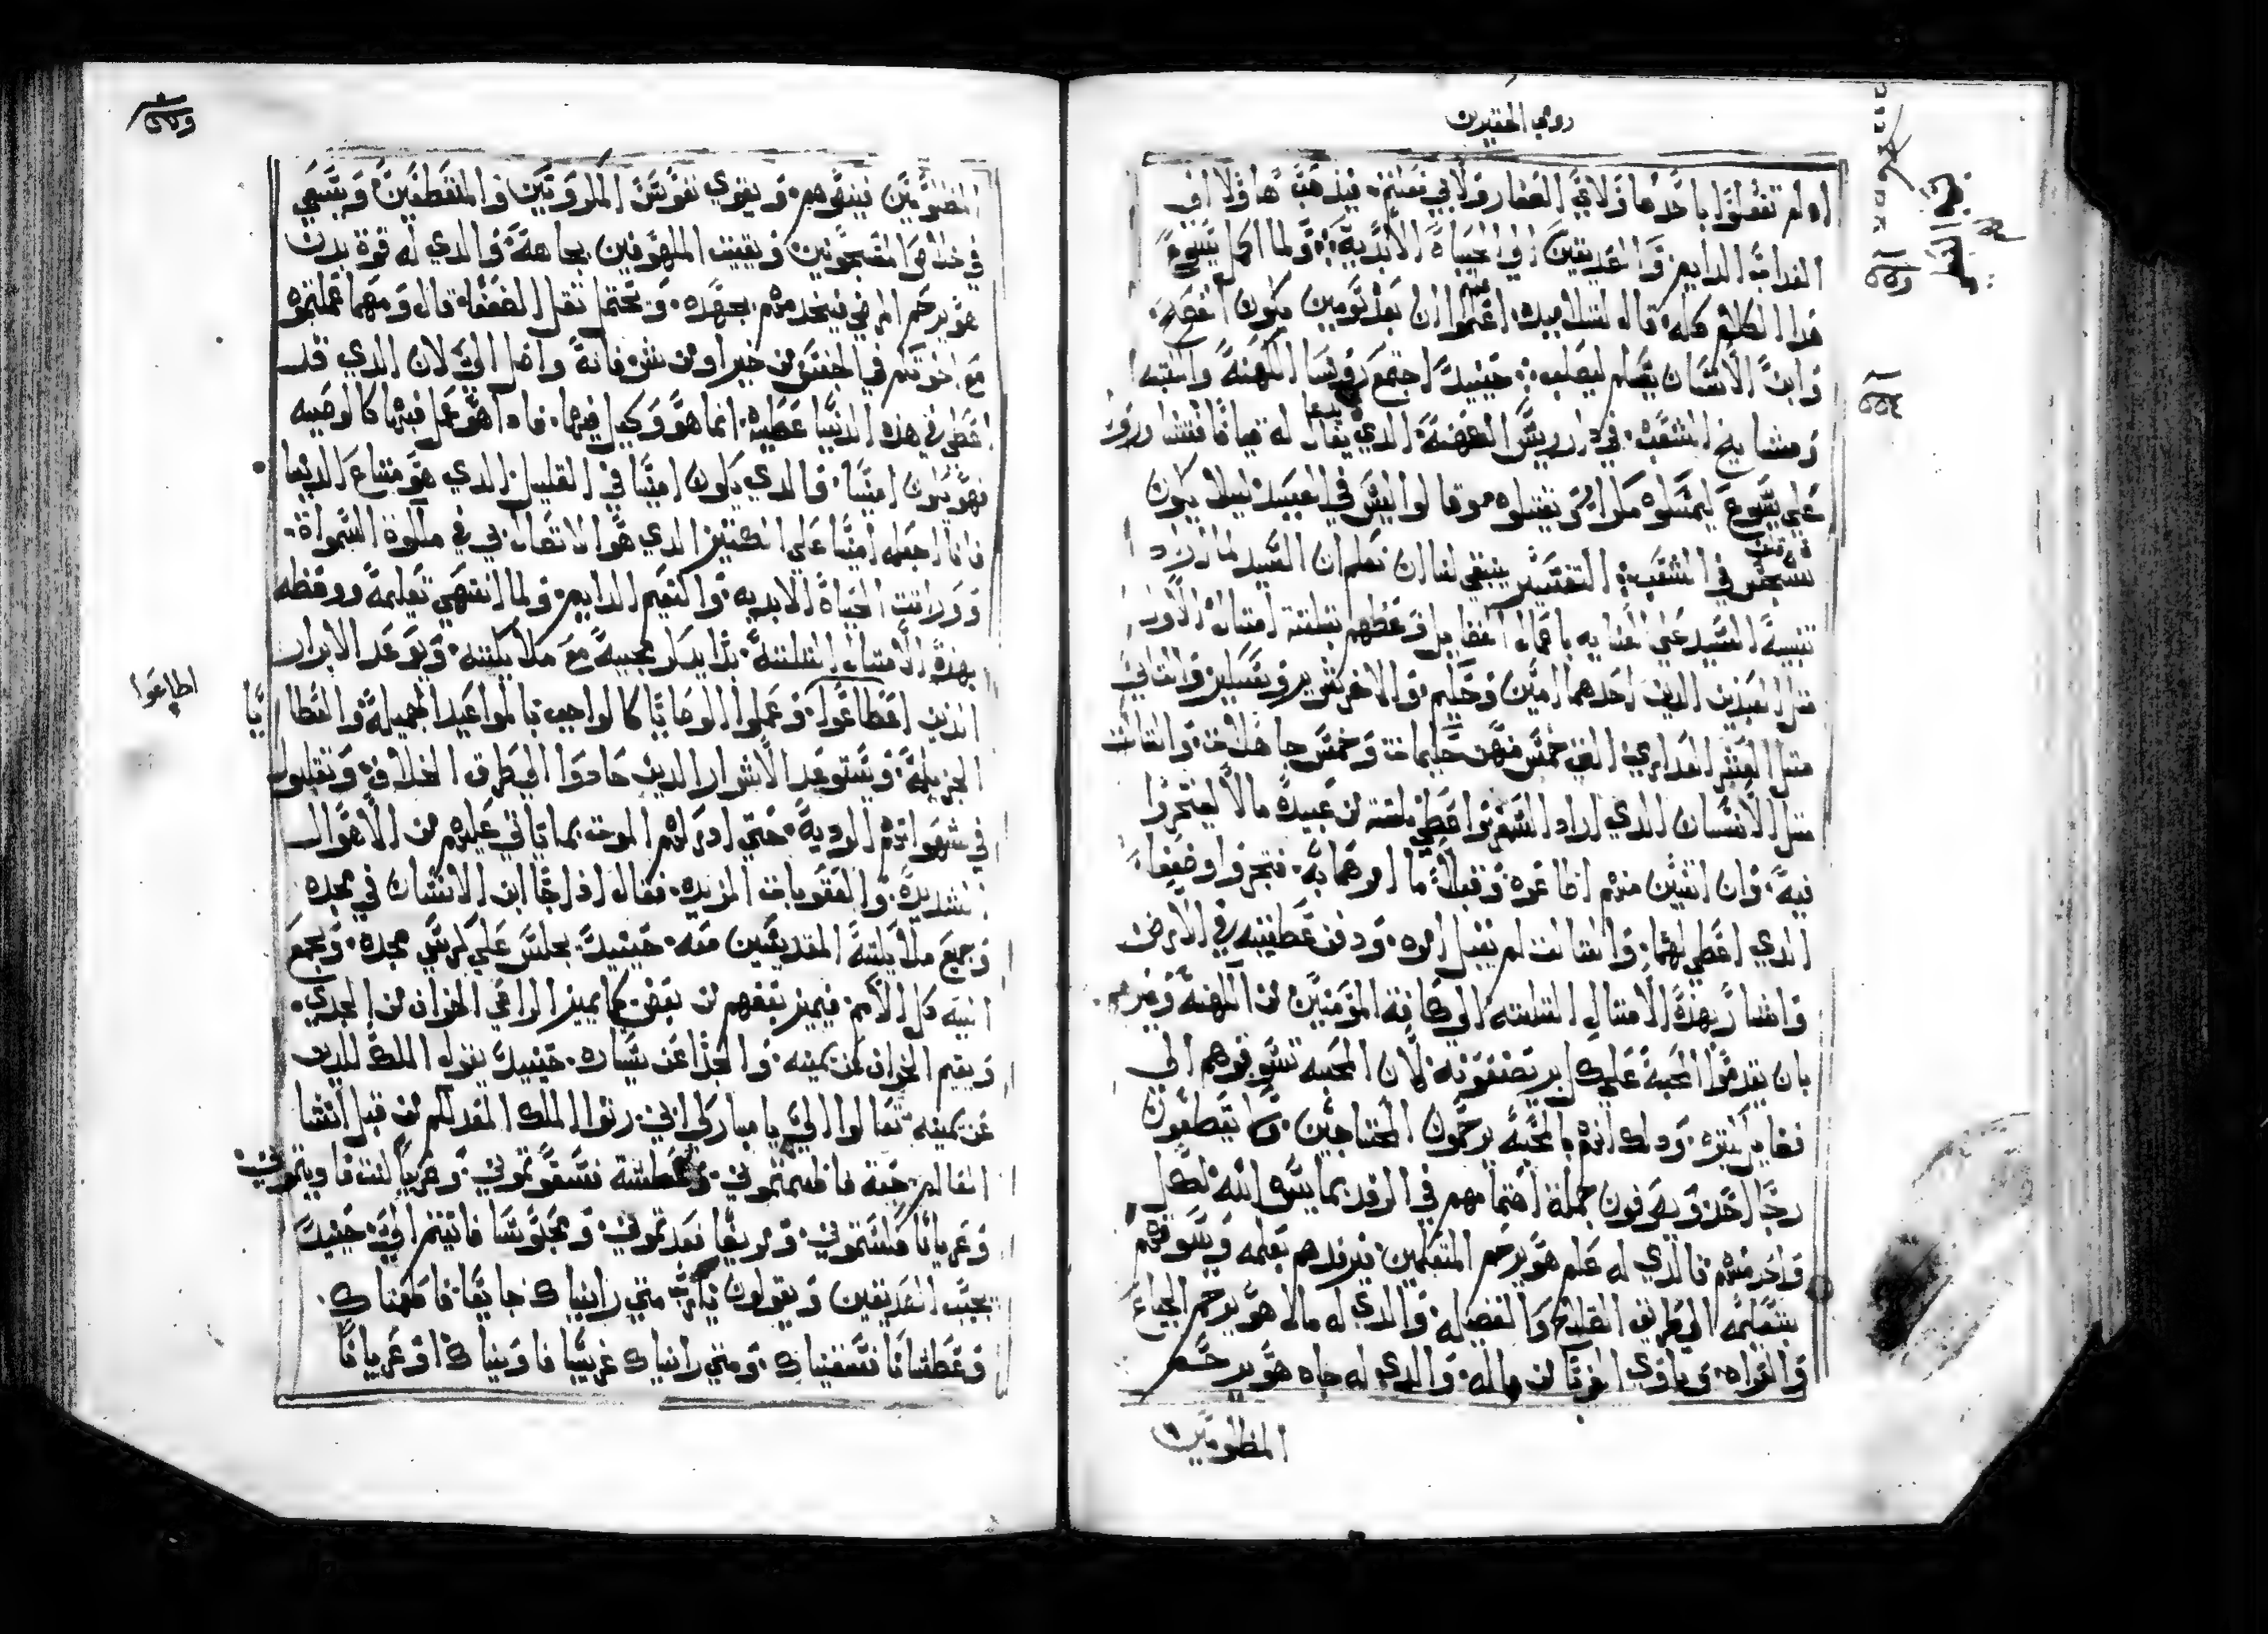 اولم تفعلوا باحد هاولاي الصغار ولا بي فعلتم. فيذهب هاولا الي
العذاب الدايم. والصديقين الي الحياة الأبدية: ولما اكمل يسوع
هذا الكلام كله. قال لتلاميده. اعلموا ان بعد يومين يكون الفصح.
وابن الانسان يسلم ليصلب: حينيد اجتمع روسا الكهنة والكتبه
ومشايخ الشعب. في دار رييس الكهنة. الدي يقال له قيافا فتشاوروا
علي يسوع ليمسكوه بمكر ويقتلوه وقالوا ليس في العيد ليلا يكون
سجس في الشعب: التفسير ينبغي لنا ان نعلم ان السيد لما اراد
تنبيه السيد علي العنايه باعمال الفضايل وعظهم بتلتة امتال الأول
متل العبدين الدين احدهما امين وحكيم. والاخر شرير وكسلان. والتاني
متل العشر العداري التي خمس منهن حكيمات وخمس جاهلات. والتالت
متل الانسان الدي اراد السفر فاعطي تلتة من عبيده مالا ليتجروا
فيه. وان اتنين منهم اطاعوه وقبلا ما امرهما به. فتجروا وضعفا
الدي اعطي لهما. والتالت لم يقبل امره. ودفن عطيته في الارض
واشار بهده الأمتال التلتة الي كافة المومنين من الكهنة وغيرهم
بان يقدموا المحبة علي كل بر يصنعونه. لان المحبه تسوقهم الي
فعل كل بر. ودلك انهم بالمحبه يرحمون المحتاجين. كما يقطعون
رجا احد ويصرفون جملة اهتمامهم في الرفد بما يسر الله لكل
واحد منهم. فالدي له علم هو يرحم المتعلمين. فيرفدهم بعلمه ويسوقهم
بتعليمه الي طرايق الصلاح والفضيله. والدي له مال هو يرحم الجياع
والعراه. وياوي الغربا من ماله. والدي له جاه هو يرحم
المظلومين
المظلومين فينصرهم. ويقوي نفوس المكروبين والمنقطعين ويسعي
في خلاص المسجونين ويغيت الملهوفين بجاهه. والدي له قوة بدن
هو يرحم المرضي فيخدمهم بجهده. ويحتمل تقل الضعفا. قال ومهما عملتموه
مع اخوتكم في الجنس من خير او من شر فانه واصل الي. لان الدي قد
اعطي في هده الدنيا عطيه. انما هو وكيل فيها. فادا هو عمل فيها كالوصيه
فهو يكون امينا. فالدي يكون امينا في القليل. الدي هو متاع الدنيا
فانا اجعله امينا علي الكتير. الدي هو الاتصال بي في ملكوة السمواة.
ووراتت الحياة الابديه. والنعيم الدايم. ولما انتهي تعليمه ووعظه
بهده الأمتال التلتة. بدا يدكر مجييه مع ملايكته. ويوعد الابرار
الدين اطاعوا. وعملوا الوصايا كالواجب بالمواعيد الجميلة والعطايا
اطاعوا
الجزيلة. ويتوعد الأشرار الدين حادوا الي طرق الخلاف. وتقلبوا
في شهواتهم الرديه. حتي ادركهم الموت بما ياتي عليهم من الأهوال
الشديدة. والعقوبات المزيده. فقال ادا جا ابن الانسان في مجده
وجميع ملايكته المقديسين معه. حينيد يجلس علي كرسي مجده. ويجمع
اليه كل الأمم. فيميز بعضهم من بعض كما يميز الراعي الخراف من الجدي.
ويقيم الخراف عن يمينه. والجدا عن يساره. حينيد يقول الملك للدين
عن يمينه تعالوا الي يا مباركي ابي. رتوا الملك المعد لكم من قبل انشا
العالم. جعت فاطعمتموني. وعطشت فسقيتموني. وغريبا كنت فاويتموني.
وعريانا فكسوتموني. ومريضا فعدتموني. ومحبوسا فاتيتم الي. حينيد
يجيب الصديقين ويقولون يارب متي رايناك جايعا فاطعمناك.
وعطشانا فسقيناك. ومتي رايناك غريبا فاويناك او عريانا